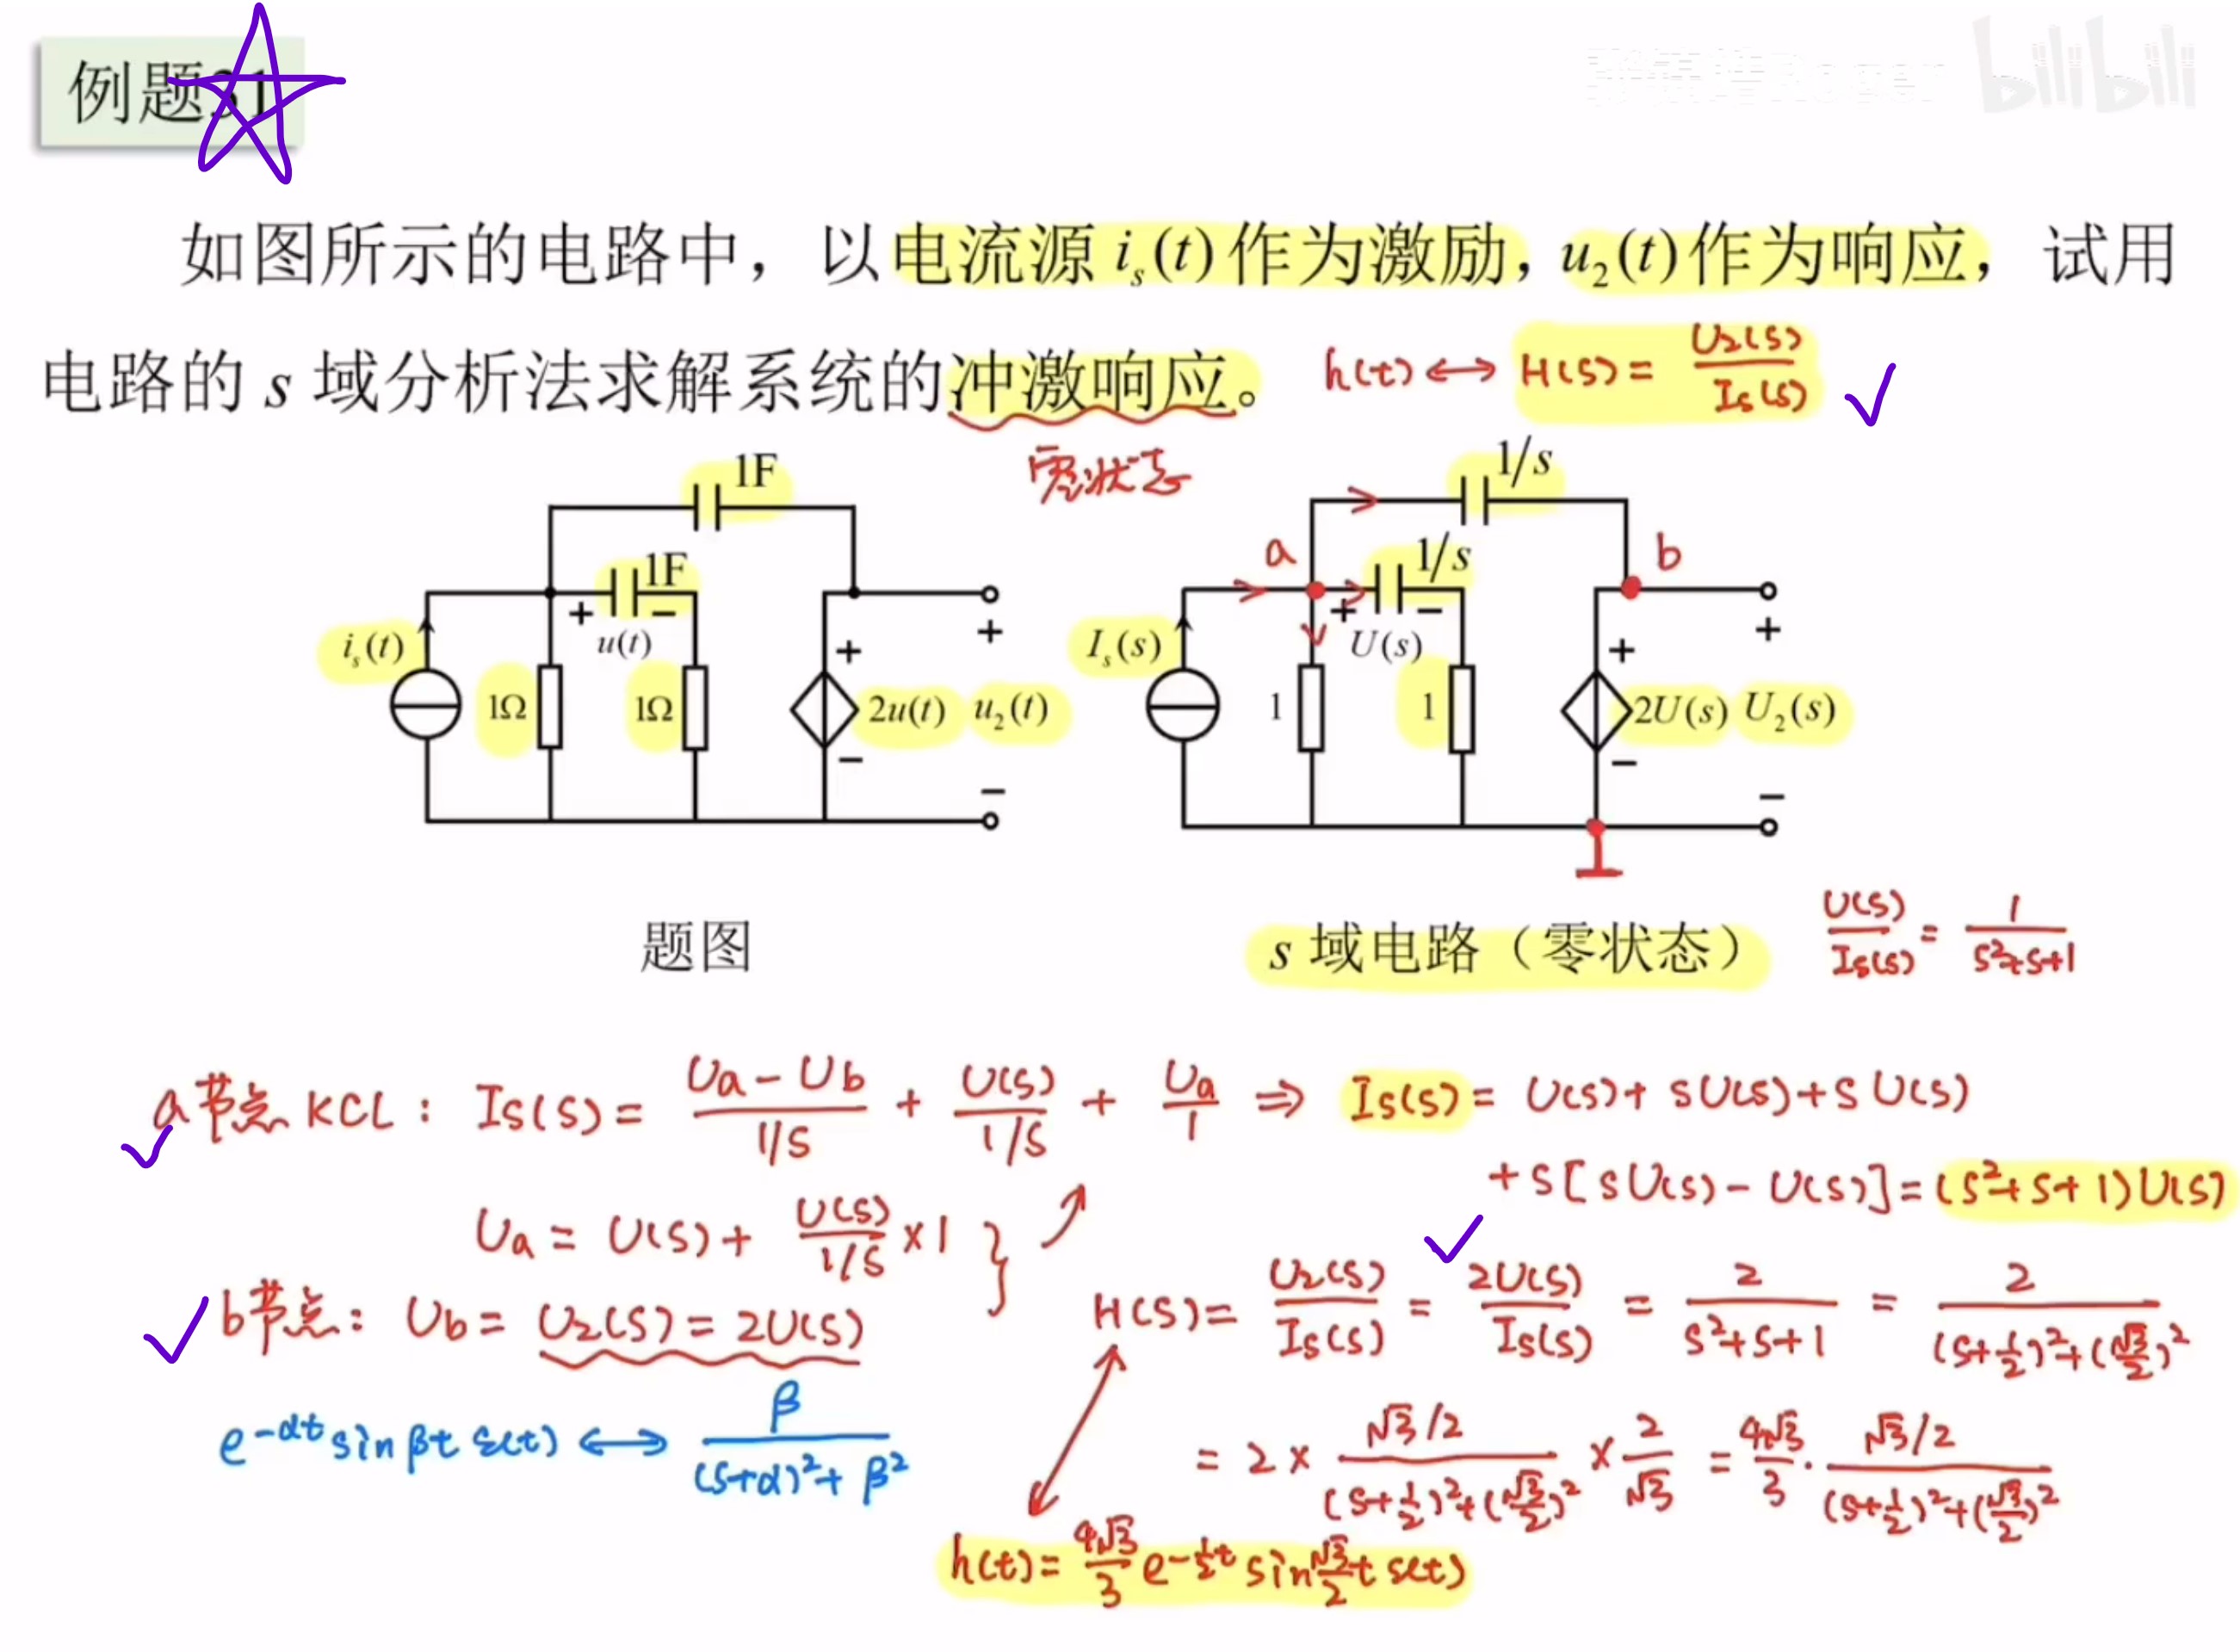 例题31
bilibili
如图所示的电路中，以电流源 i_s(t) 作为激励，u_2(t) 作为响应，试用
电路的 s 域分析法求解系统的冲激响应。 h(t) ⟷ H(s) = U_2(s)/I_s(s) ✓
零状态
1F
1F
+ u(t) −
i_s(t)
1Ω
1Ω
+ 2u(t) −
+ u_2(t) −
题图
1/s
1/s
a
b
+ U(s) −
I_s(s)
1
1
+ 2U(s) −
+ U_2(s) −
s 域电路（零状态）
U(s)/I_s(s) = 1/(s²+s+1)
a节点 KCL: I_s(s) = (U_a − U_b)/(1/s) + U(s)/(1/s) + U_a/1 ⇒ I_s(s) = U(s) + sU(s) + sU(s)
+ s[sU(s) − U(s)] = (s²+s+1)U(s)
U_a = U(s) + U(s)/(1/s) × 1 }
b节点: U_b = U_2(s) = 2U(s)
H(s) = U_2(s)/I_s(s) = 2U(s)/I_s(s) = 2/(s²+s+1) = 2/((s+1/2)²+(√3/2)²)
e^{-αt} sin βt ε(t) ⟷ β/((s+α)²+β²)
= 2 × (√3/2)/((s+1/2)²+(√3/2)²) × 2/√3 = 4√3/3 · (√3/2)/((s+1/2)²+(√3/2)²)
h(t) = 4√3/3 e^{-1/2 t} sin √3/2 t ε(t)